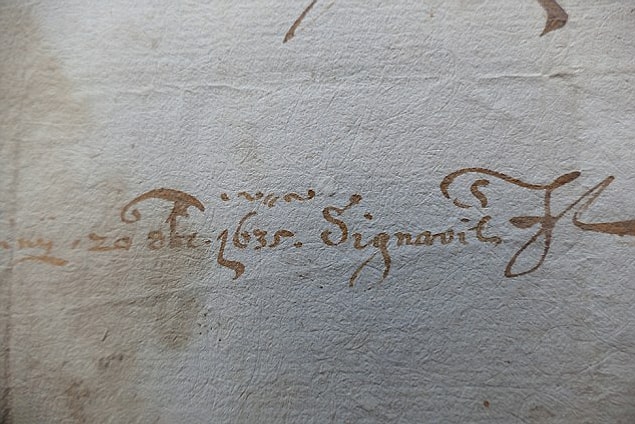 20 8br. 1635. Signavit